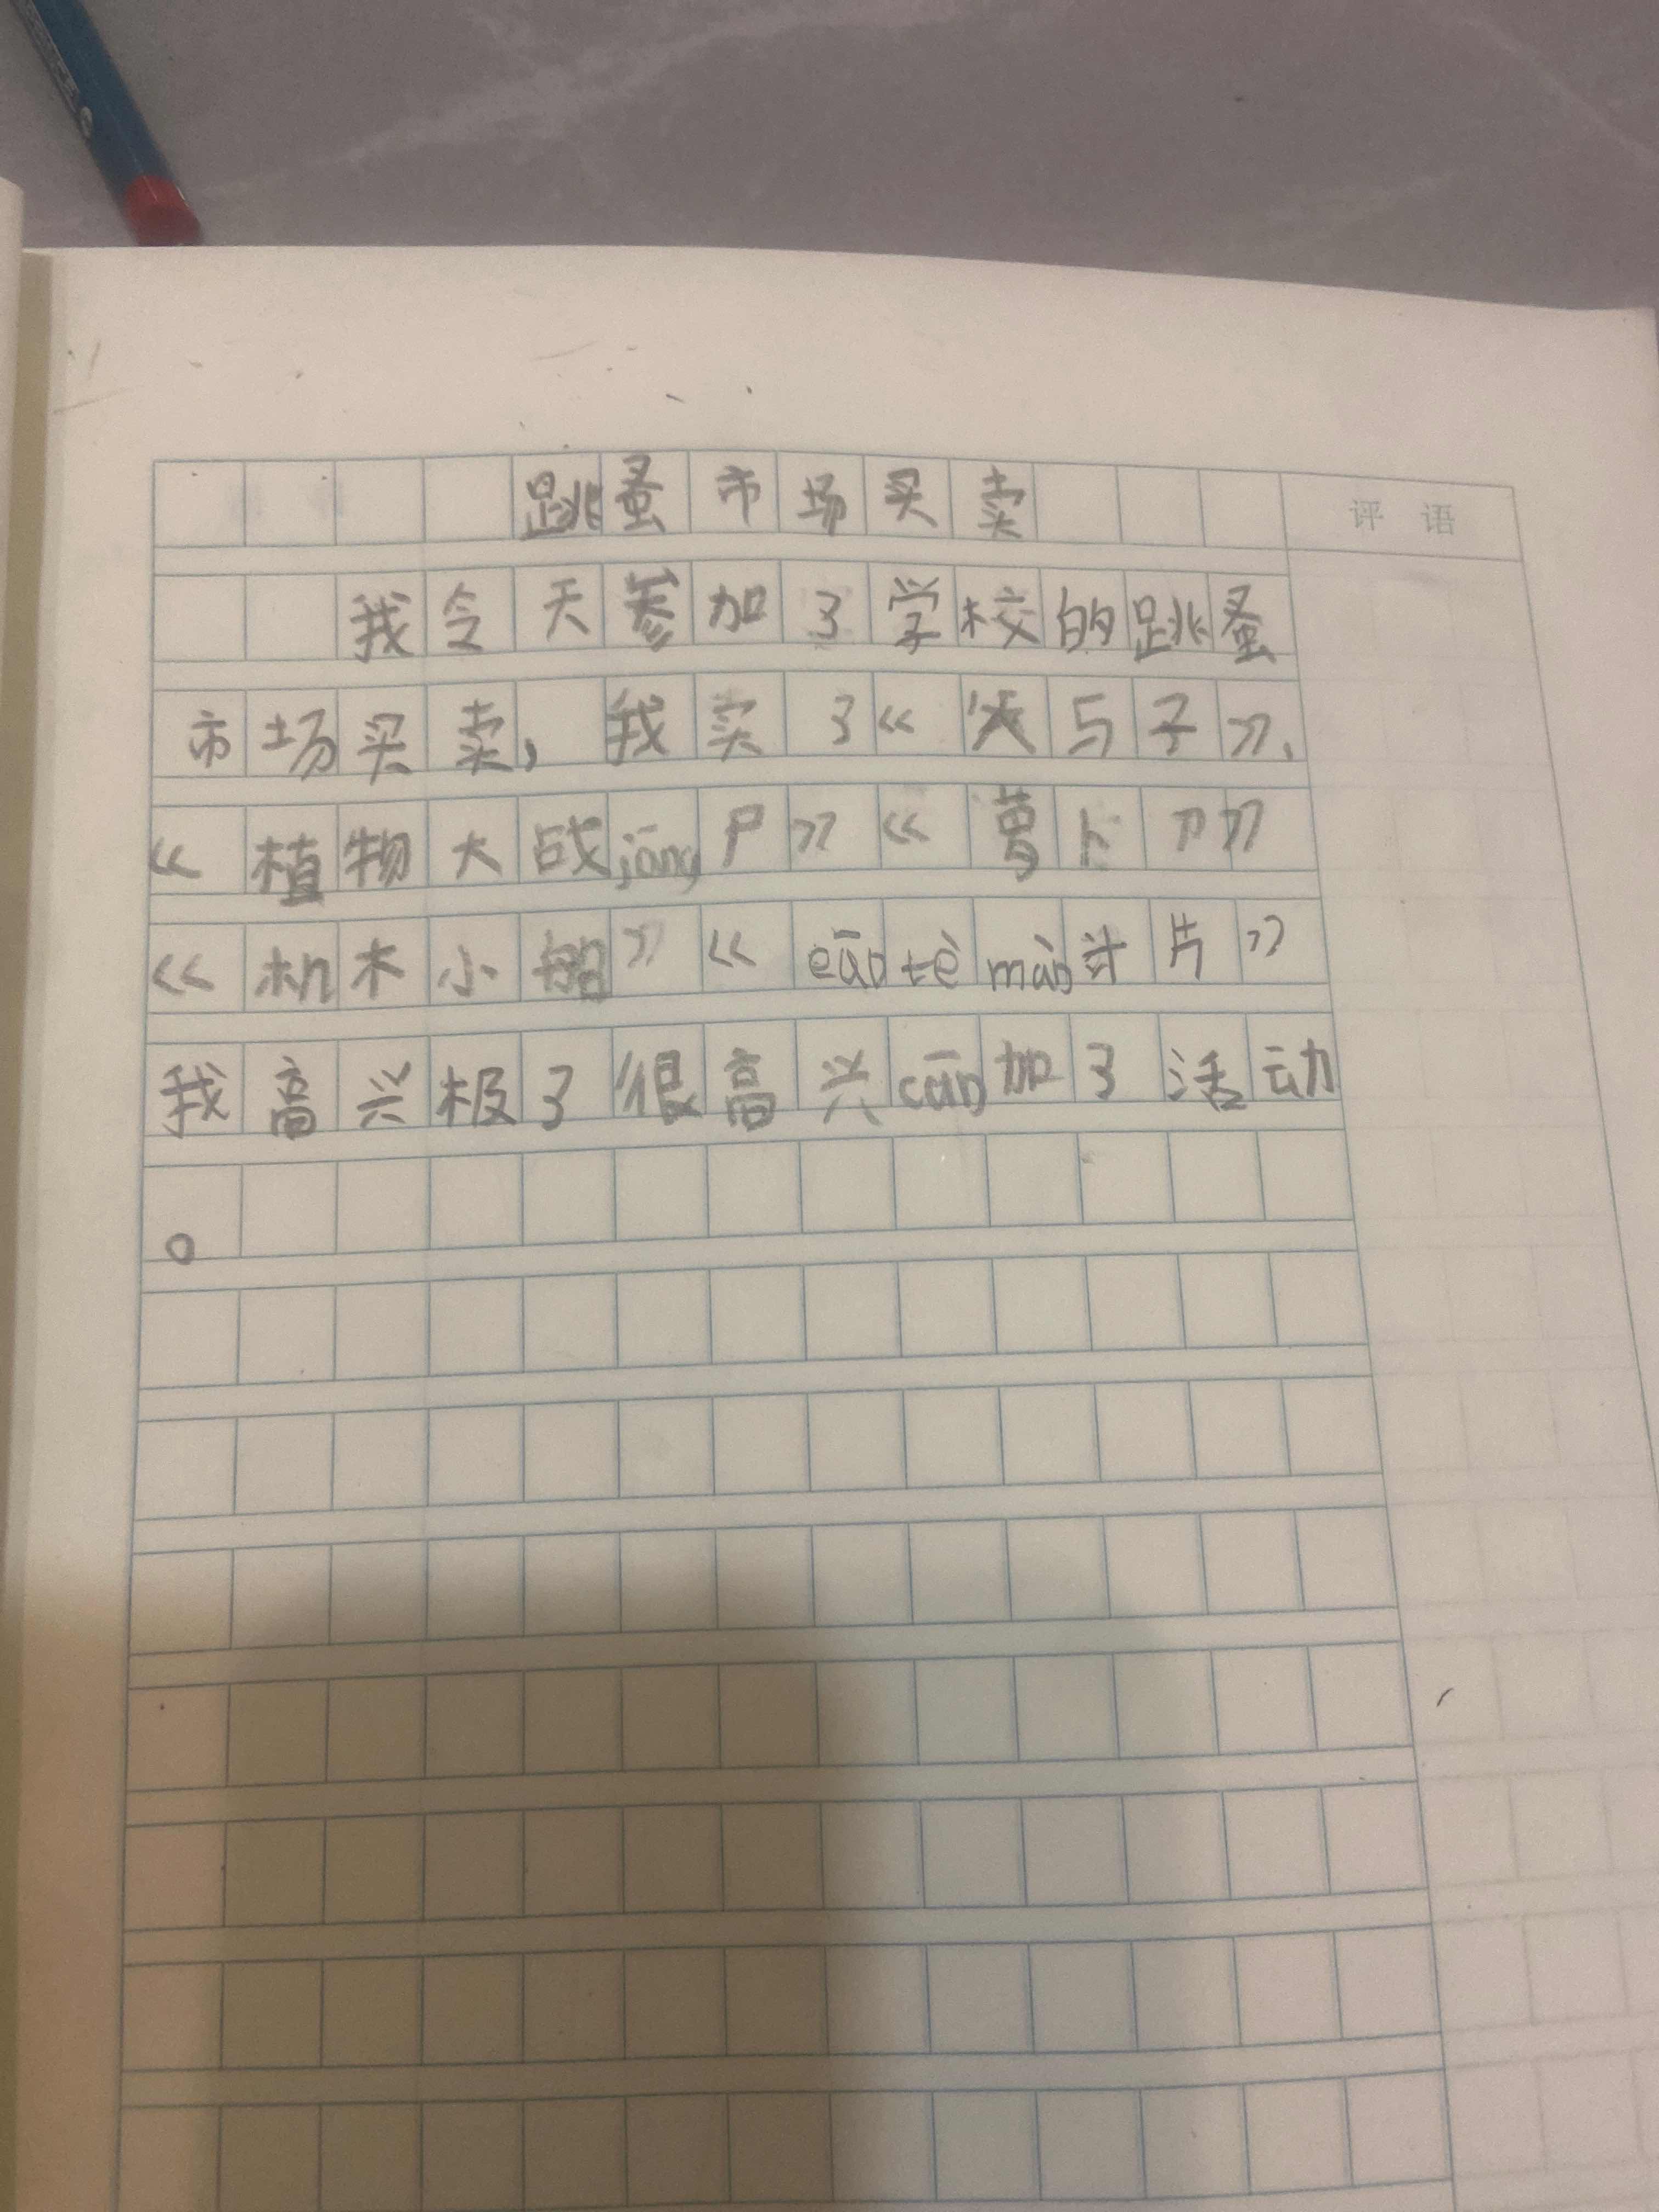 跳蚤市场买卖
评语
我令天参加了学校的跳蚤
市场买卖，我卖了《与子》、
《植物大战jāng尸》《萝卜刀》
《机木小船》《eāotèmàn卡片》
我高兴极了很高兴cān加了活动
。